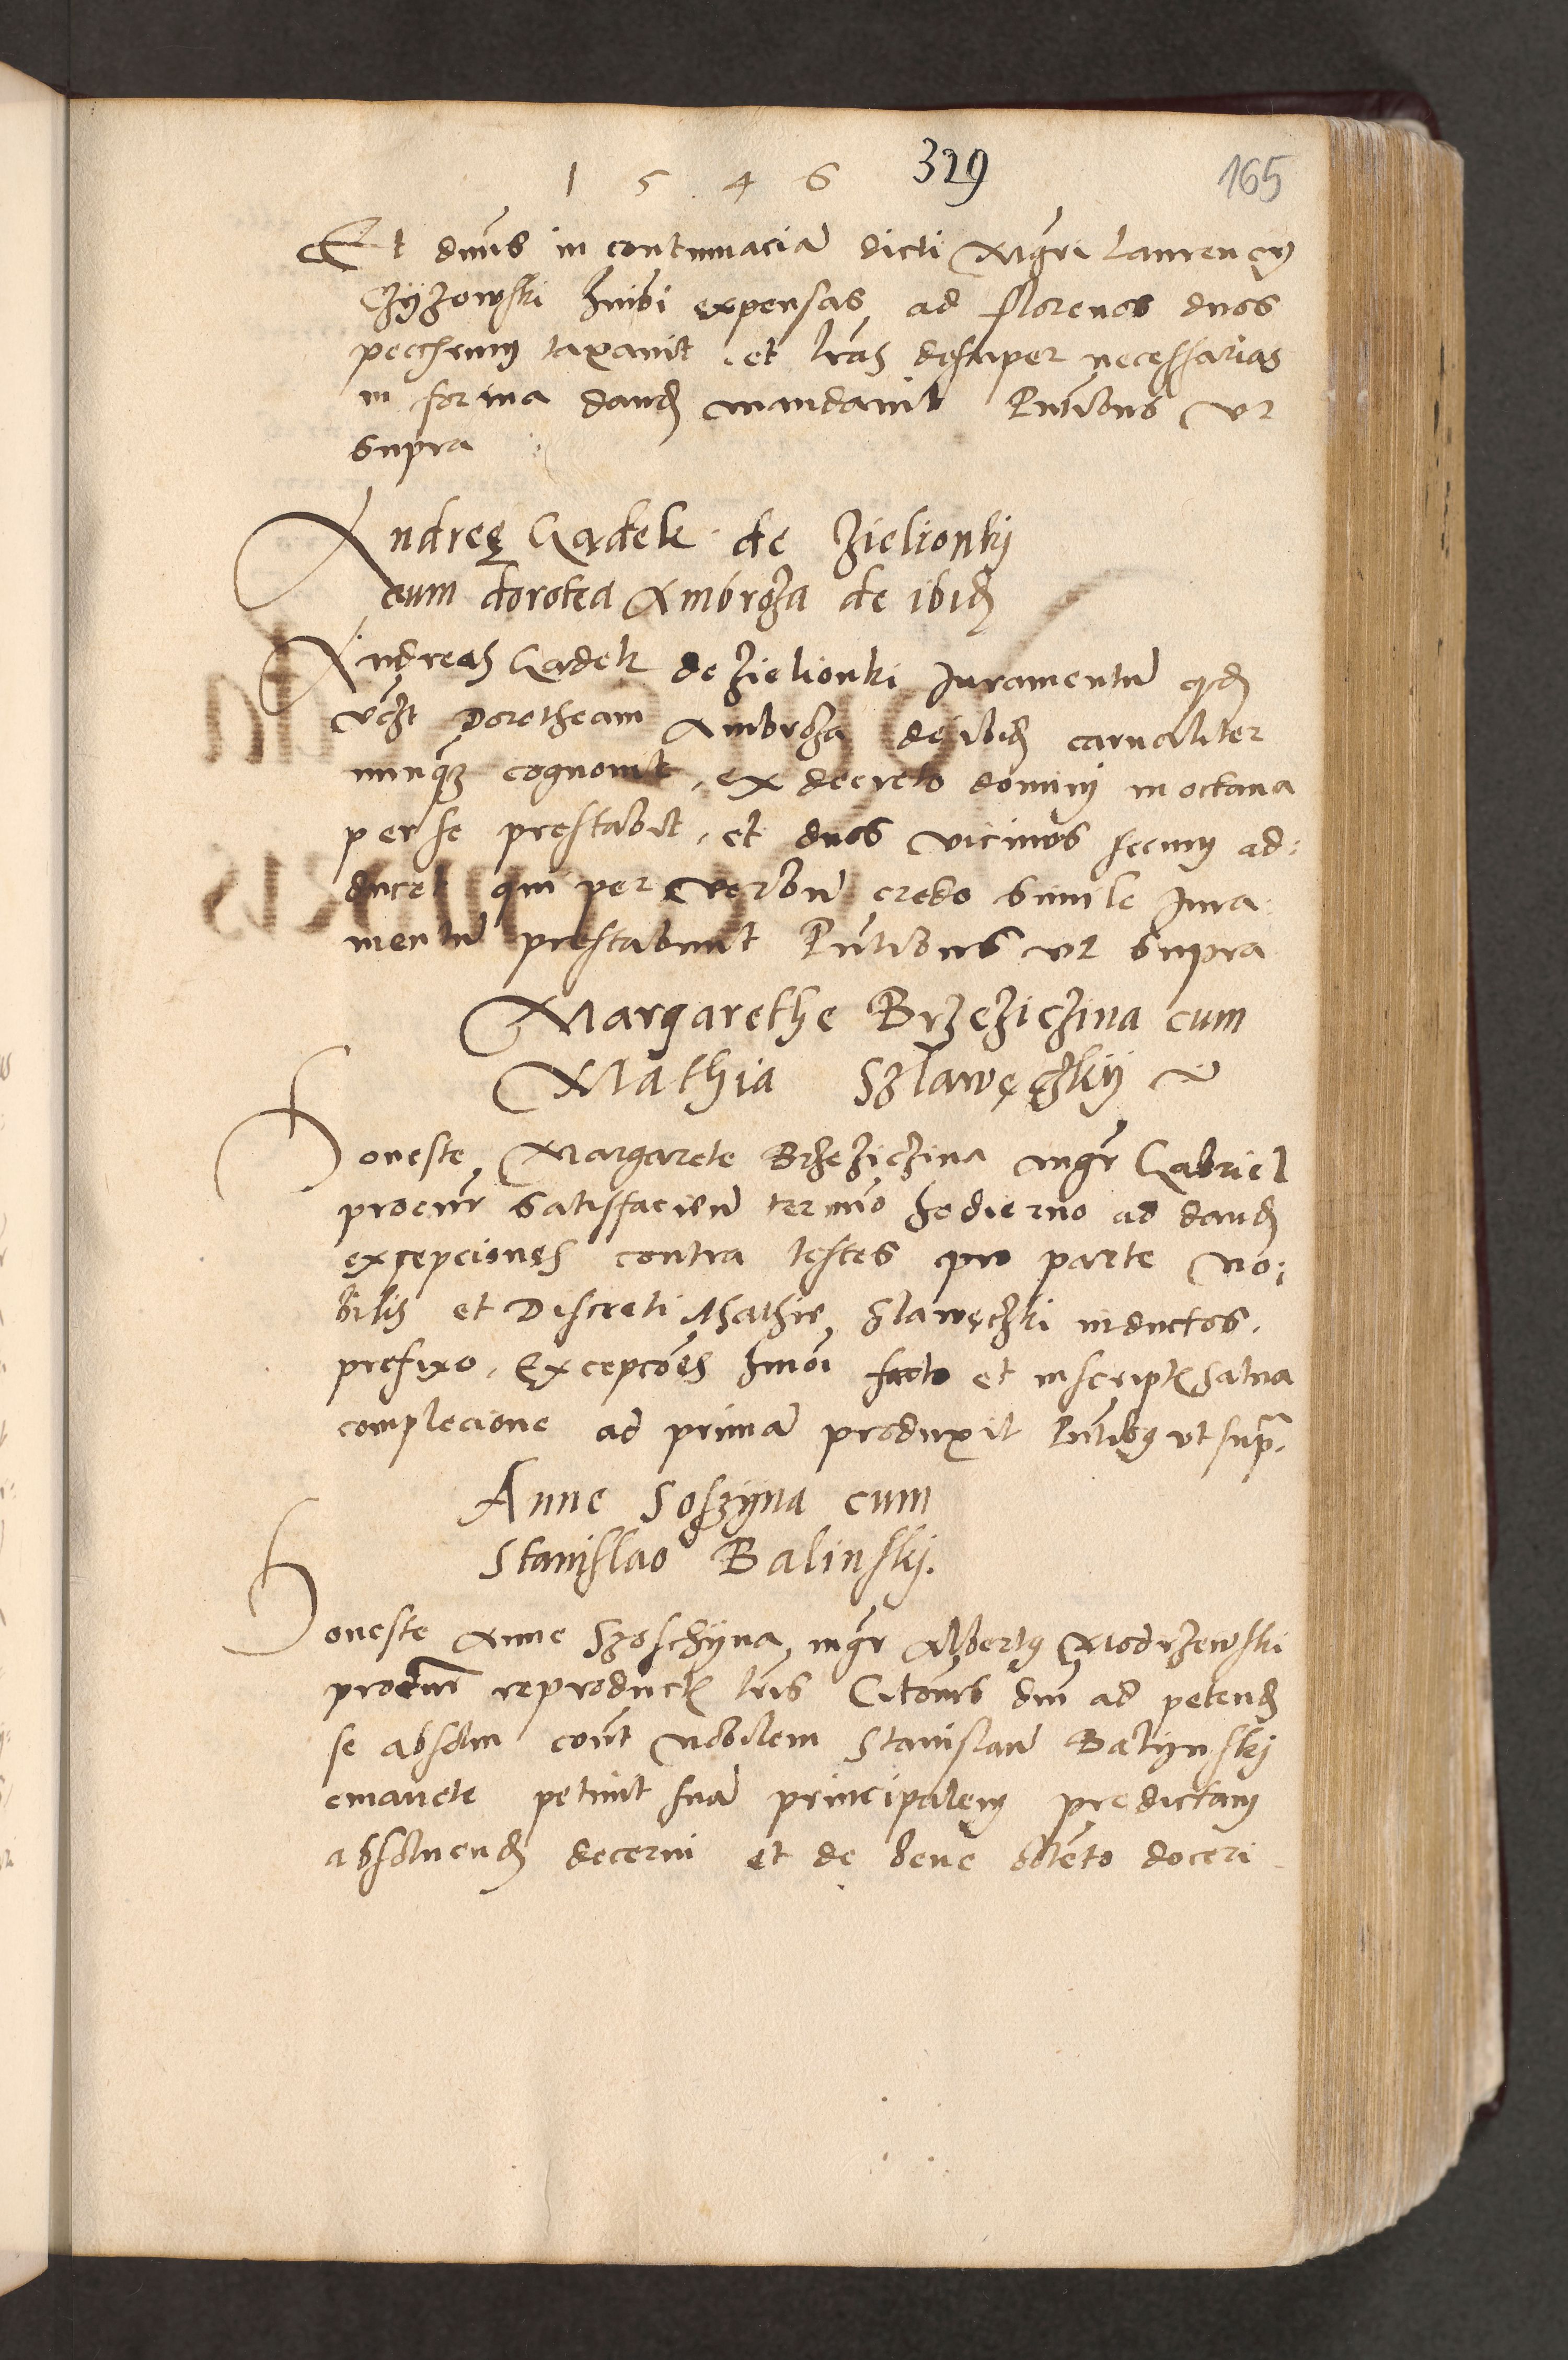 1546 329 165
Et dnus in contumaciam dicti Mgri Laurency
Czyzowski hmoi expensas ad florenos duos
pecchrum taxavit et lras desuper necessarias
in forma dand mandavit Pntibus vt
supra
Andreę Gądek de Zielionky
cum dorotea Ambroza de ibid
Andreas Gadek de Zielionki Juramentu qd
Dorotheam Ambroza de ibid carnaliter
nunqz cognovit, ex decreto dominj in octava
per se prestabit, et duos vicinos secum ad:
ducet qui per verbu credo simile Jura
mentu prestabunt Pntibus vt supra
Margarethe Brzeziczina cum
Mathia Szlawęczky
Honeste Margarete Brzeziczina mgr Gabriel
procur satisfacien termino hodierno ad dand
excepciones contra testes pro parte No:
bilis et Discreti Mathie Slawęczki inductos,
prefixo, Excepcoes hmoi facto et in script salva
complecione ad prima produxit Pntibq vt supra
Anne Soszyna cum
Stanislao Balinsky.
Honeste Anne Szoschyna mgr Albertq Modrzewski
procur reproduct lris Citoris dni ad petend
se absolvi cont Nobilem Stanislau Balynsky
emanete petivit sua principalem predictam
absolvend decerni et de bene obtento doceri